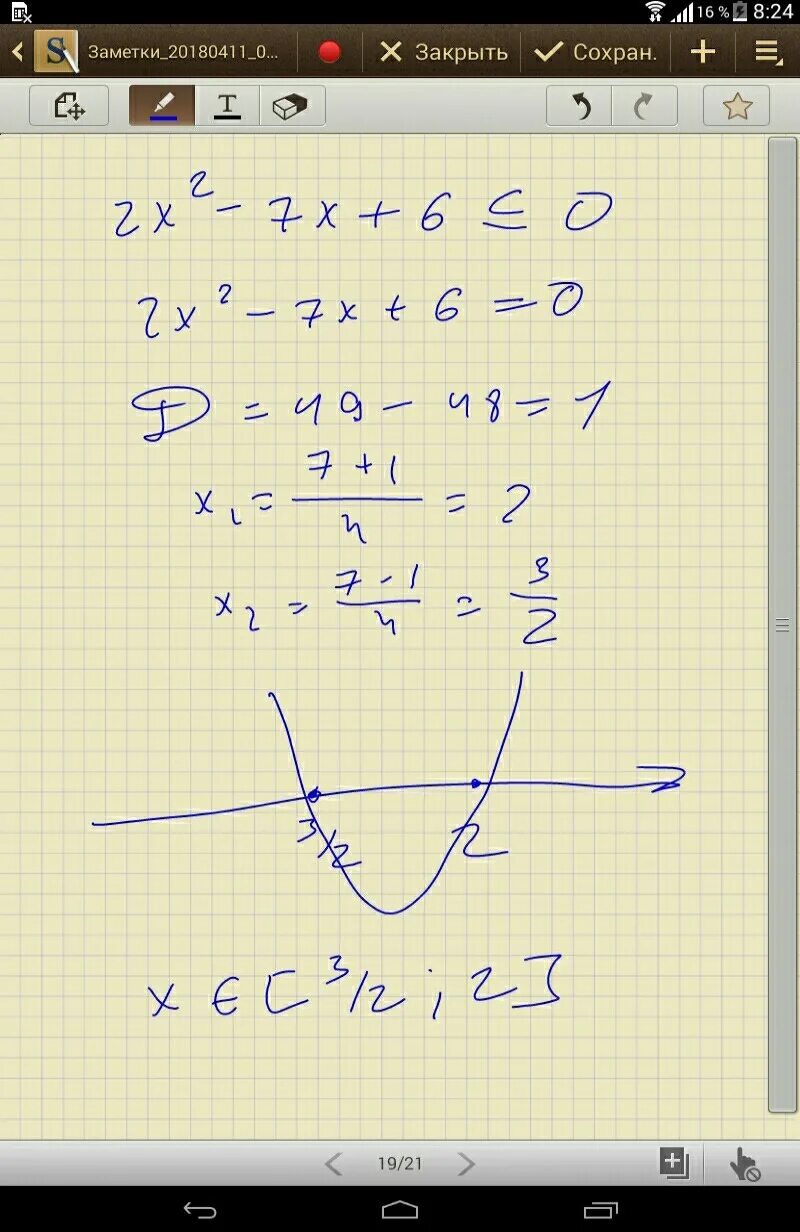 16 % 8:24
Заметки_20180411_0... Закрыть Сохран.
T
2x² - 7x + 6 ≤ 0
2x² - 7x + 6 = 0
D = 49 - 48 = 1
x₁ = (7 + 1)/4 = 2
x₂ = (7 - 1)/4 = 3/2
3/2 2
x ∈ [3/2 ; 2]
19/21